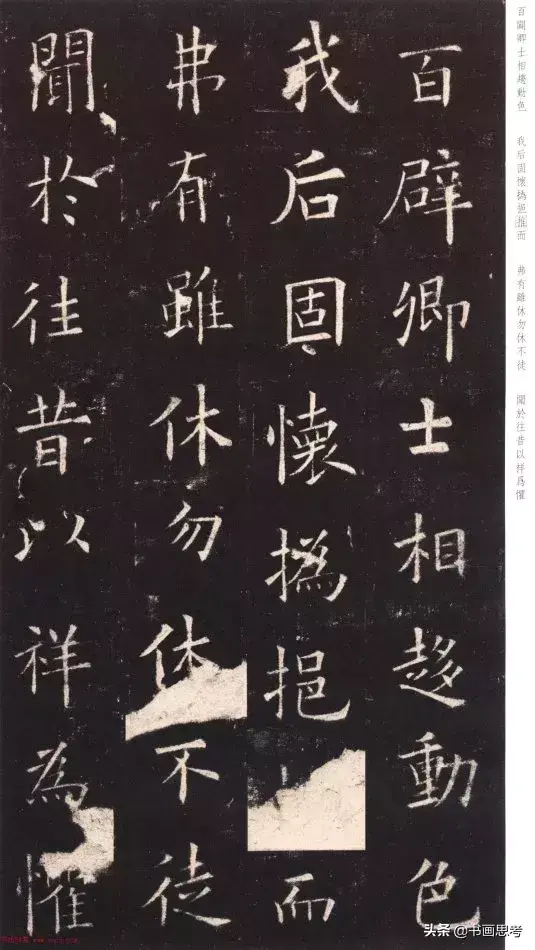 百闢卿士相趨動色 我后固懷撝挹推而 弗有雖休勿休不徒 聞於往昔以祥爲懼
百辟卿士相趍動色
我后固懷撝挹而
弗有雖休勿休不徒
聞於往昔以祥為懼
头条 @书画思考